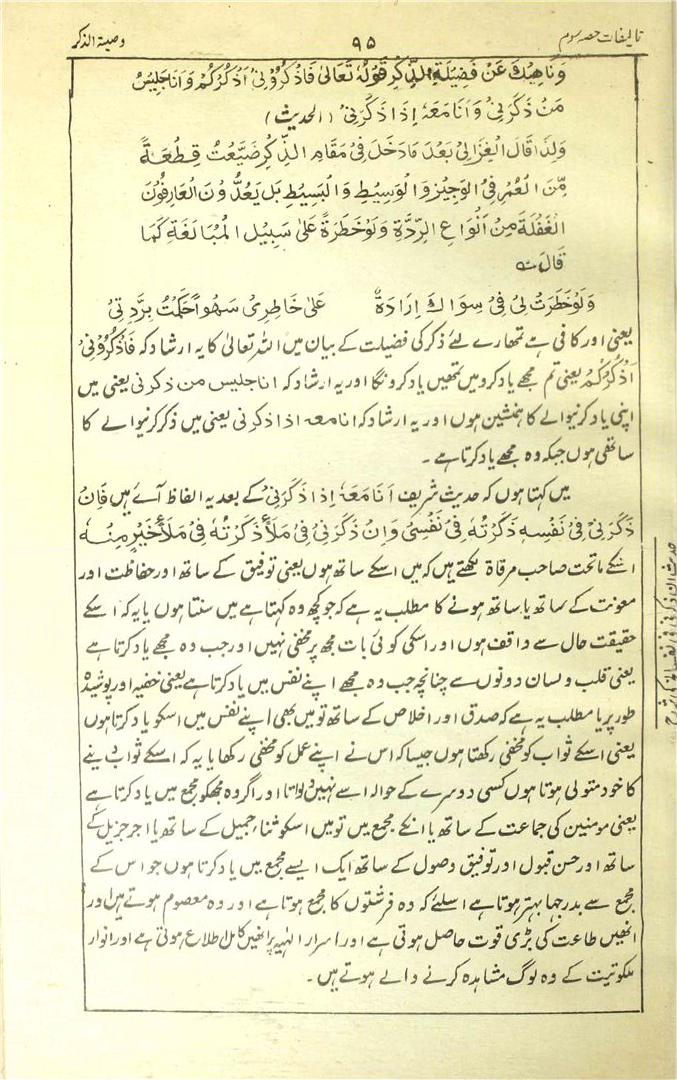 تالیفات حصہ سوم
۹۵
وصیۃ الذکر
وَنَاهِيْكَ عَنْ فَضِيْلَةِ الذِّكْرِ قَوْلُهٗ تَعَالىٰ فَاذْكُرُوْنِيْ اَذْكُرْكُمْ وَاَنَا جَلِيْسُ
مَنْ ذَكَرَنِيْ وَاَنَا مَعَهٗ اِذَا ذَكَرَنِيْ (الحديث)
وَلِذَا قَالَ الْغِزَالِيْ بَعْدَ مَا دَخَلَ فِيْ مَقَامِ الذِّكْرِ ضَيَّعْتُ قِطْعَةً
مِّنَ الْعُمُرِ فِي الْوَجِيْزِ وَالْوَسِيْطِ وَالْبَسِيْطِ بَلْ يَعُدُّوْنَ الْعَارِفُوْنَ
الْغَفْلَةَ مِنْ اَنْوَاعِ الرِّدَّةِ وَلَوْ خَطَرَةً عَلىٰ سَبِيْلِ الْمُبَالَغَةِ كَمَا
قَالَ ؎
وَلَوْ خَطَرَتْ لِيْ فِيْ سِوَاكَ اِرَادَةٌ عَلىٰ خَاطِرِيْ سَهْوًا حَكَمْتُ بِرِدَّتِيْ
یعنی اور کافی ہے تمھارے لئے ذکر کی فضیلت کے بیان میں اللہ تعالیٰ کا یہ ارشاد کہ فَاذْكُرُوْنِيْ
اَذْكُرْكُمْ یعنی تم مجھے یاد کرو میں تمھیں یاد کرونگا اور یہ ارشاد کہ انا جلیس من ذکرنی یعنی میں
اپنی یاد کرنیوالے کا ہمنشین ہوں اور یہ ارشاد کہ انا معہ اذا ذکرنی یعنی میں ذکر کرنیوالے کا
ساتھی ہوں جبکہ وہ مجھے یاد کرتا ہے ۔
میں کہتا ہوں کہ حدیث شریف اَنَا مَعَهٗ اِذَا ذَكَرَنِيْ کے بعد یہ الفاظ آئے ہیں فَاِنْ
ذَكَرَنِيْ فِيْ نَفْسِهٖ ذَكَرْتُهٗ فِيْ نَفْسِيْ وَاِنْ ذَكَرَنِيْ فِيْ مَلَأٍ ذَكَرْتُهٗ فِيْ مَلَأٍ خَيْرٍ مِنْهُ
اسکے ماتحت صاحب مرقاۃ لکھتے ہیں کہ میں اسکے ساتھ ہوں یعنی توفیق کے ساتھ اور حفاظت اور
معونت کے ساتھ یا ساتھ ہونے کا مطلب یہ ہے کہ جو کچھ وہ کہتا ہے میں سنتا ہوں یا یہ کہ اسکے
حقیقت حال سے واقف ہوں اور اسکی کوئی بات مجھ پر مخفی نہیں اور جب وہ مجھے یاد کرتا ہے
یعنی قلب و لسان دونوں سے چنانچہ جب وہ مجھے اپنے نفس میں یاد کرتا ہے یعنی خفیہ اور پوشیدہ
طور پر یا مطلب یہ ہے کہ صدق اور اخلاص کے ساتھ تو میں بھی اپنے نفس میں اسکو یاد کرتا ہوں
یعنی اسکے ثواب کو مخفی رکھتا ہوں جیسا کہ اس نے اپنے عمل کو مخفی رکھا یا یہ کہ اسکے ثواب دینے
کا خود متولی ہوتا ہوں کسی دوسرے کے حوالہ اسے نہیں دلواتا اور اگر وہ مجھکو مجمع میں یاد کرتا ہے
یعنی مومنین کی جماعت کے ساتھ یا انکے مجمع میں تو میں اسکو ثناء جمیل کے ساتھ یا اجر جزیل کے
ساتھ اور حسن قبول اور توفیق وصول کے ساتھ ایک ایسے مجمع میں یاد کرتا ہوں جو اس کے
مجمع سے بدرجہا بہتر ہوتا ہے اسلئے کہ وہ فرشتوں کا مجمع ہوتا ہے اور وہ معصوم ہوتے ہیں اور
انھیں طاعت کی بڑی قوت حاصل ہوتی ہے اور اسرار الٰہیہ پر انھیں کامل اطلاع ہوتی ہے اور انوار
ملکوتیت کے وہ لوگ مشاہدہ کرنے والے ہوتے ہیں ۔
حدیث ان ذکرنی فی نفسہ کی شرح